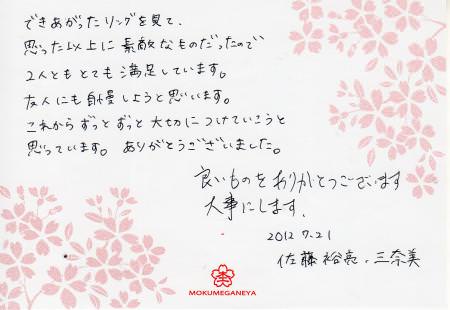 できあがったリングを見て、
思った以上に素敵なものだったので
2人ともとても満足しています。
友人にも自慢しようと思います。
これからずっとずっと大切につけていこうと
思っています。ありがとうございました。
良いものをありがとうございます
大事にします。
2012 7.21
佐藤裕亮・三奈美
MOKUMEGANEYA